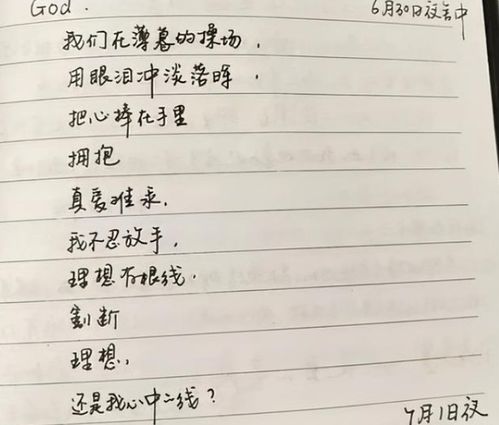 God.
6月30日夜舍中
我们在薄暮的操场，
用眼泪冲淡落晖，
把心捧在手里
拥抱
真爱难求，
我不忍放手，
理想有根线，
割断
理想，
还是我心中一线？
7月1日夜